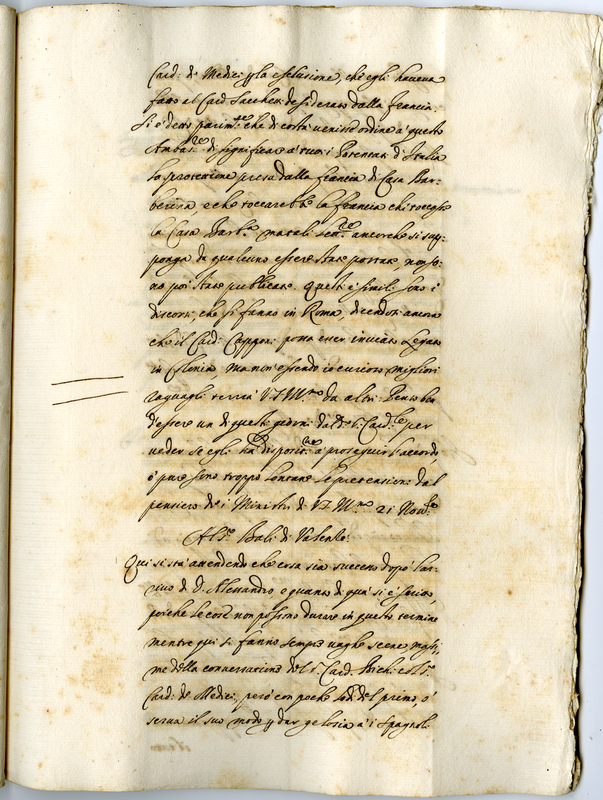 Card: de Medici p la esclusione, che egli haveva
fatto al Card Sacchetti desiderato dalla francia.
Si è detto parim.te che di costà venisse ordine à questo
Ambas.re di significare à tutti i Potentati d'Italia
la protezione presa dalla francia di Casa Bar-
berina, e che toccarebbe la Francia chi toccasse
la Casa Barb.a ma tali ancorche si sup-
ponga da qualcuno essere state portate, non so-
no poi state publicate. Questi e simili sono i
discorsi, che si fanno in Roma, dicendosi ancora
che il Card. Cappon: possa esser inviato Legato
in Colonia, ma non essendo io curioso, migliori
raguagli verrà V.S. Ill.ma da altri. Penso ben
d'essere un di questi giorni dal d.o S. Card.le per
veder se egli ha disposit.ne à proseguir l'accordo,
ò pure sono troppo lontane le pretensioni dal
pensiero de i Ministri di V. 21 Nov.re
Al S.r Balì di Valensè
Qui si stà attendendo che cosa sia successo dopò l'ar-
rivo di D. Alessandro e quanto di quà si è scritto,
perche le cose non possono durare in questo termine
mentre qui si fanno sempre vaghe scene, massi-
me della conversatione del S. Card. Bichi col S.
Card: de Medici, però con poche lodi del primo, s'
serva il suo modo p dar gelosia à i Spagnoli